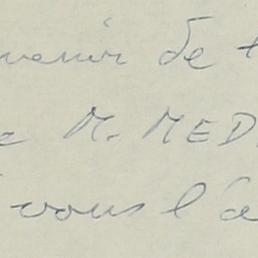 venir de t
e M. MED
vous l'a